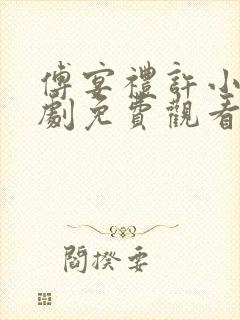 傅宴禮許小
劇免費觀看
閻揆要